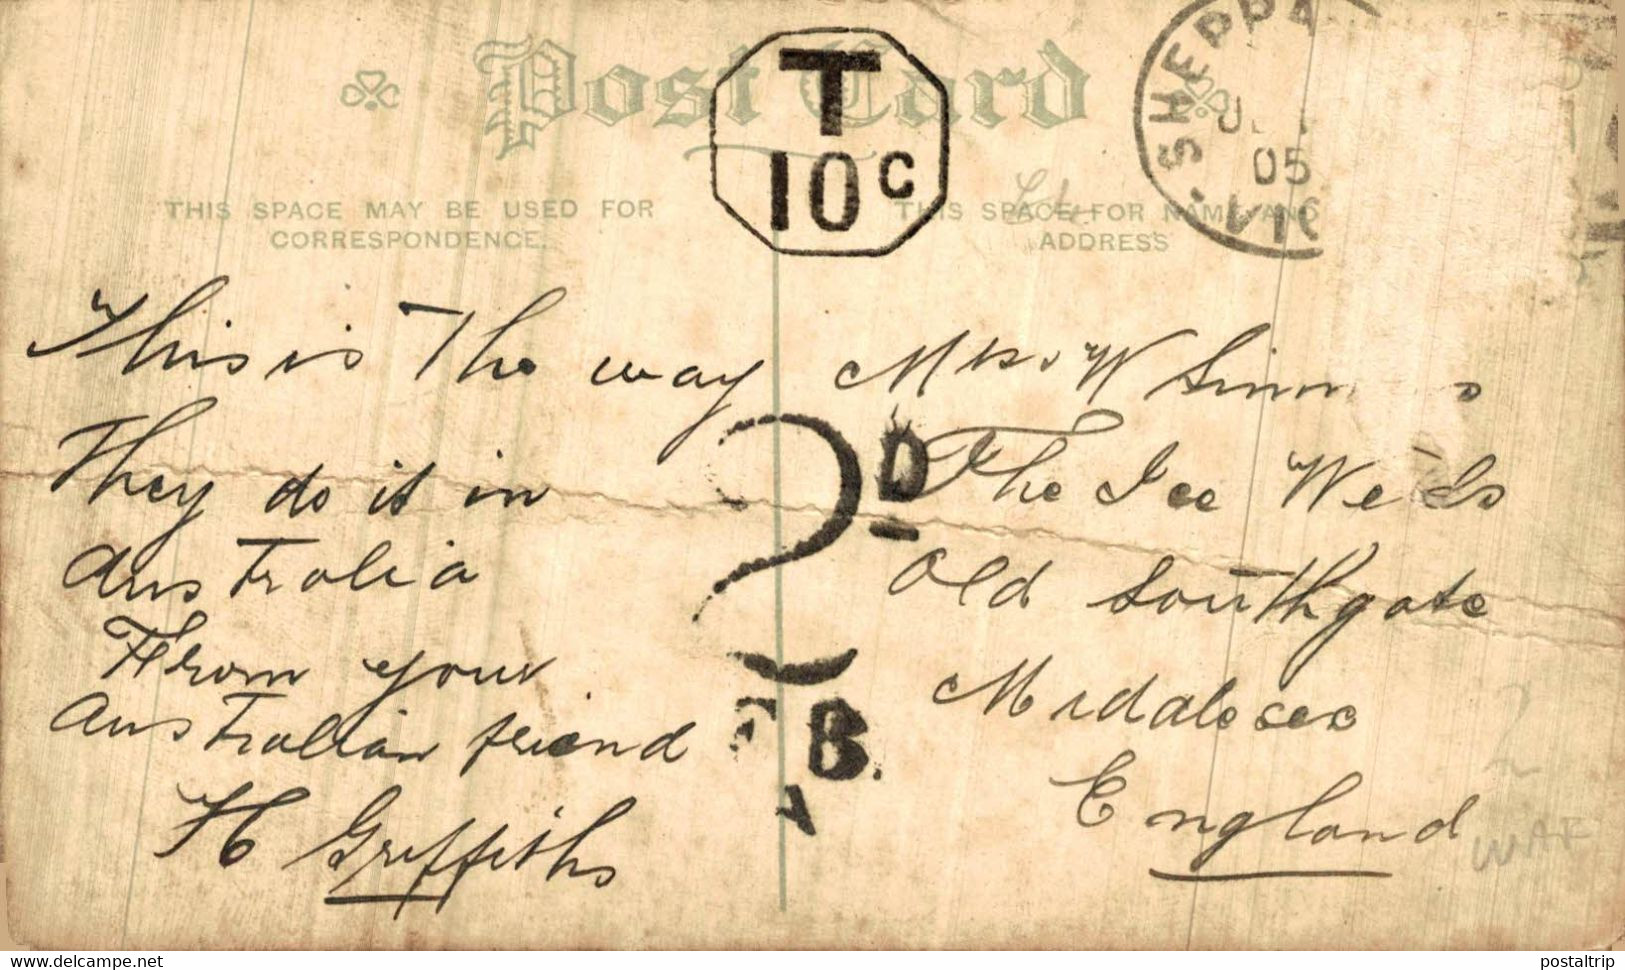 Post Card
T
10 C
SHEPPA
05
VIC
THIS SPACE MAY BE USED FOR
CORRESPONDENCE.
THIS SPACE FOR NAME AND
ADDRESS
This is The way
They do it in
Australia
From your
Australian friend
H Griffiths
2D
B.
Mrs W
The Ice Wells
Old Southgate
Middlesex
England
2
WAF
Delcampe.net
postaltrip